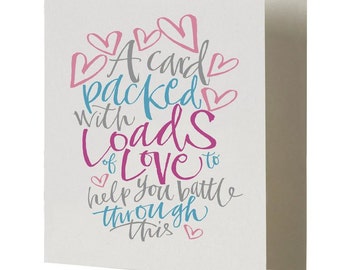 A card
packed
with
Loads
of Love to
help you battle
through
this